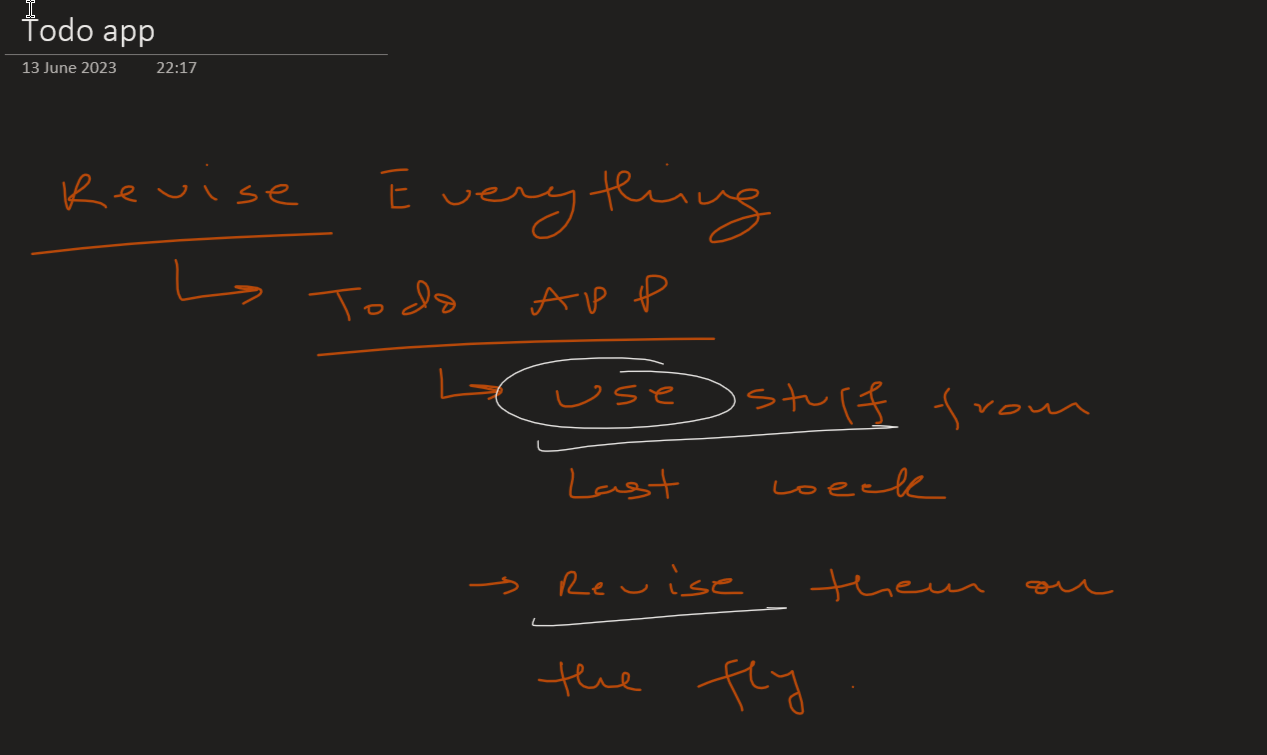 Todo app
13 June 2023 22:17
Revise Everything
Todo APP
use stuff from
Last week
Revise them on
the fly.